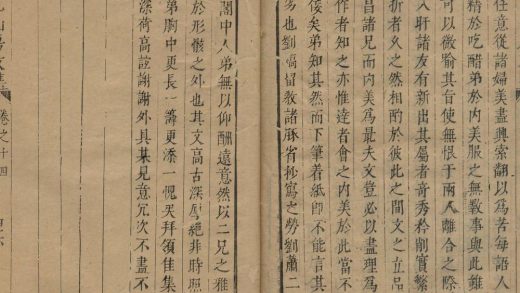 任意從諸婦美盡興索翻以為苦每語人
精於吃醋弟於內美服之無斁事與此雖
可以微喻其旨使無恨于兩人離合之際
入肝諸友有新出其屬者奇秀矜削實繁
折者久之然相酌於彼此之間文之立品
昌諸兄而內美為最夫文豈必以盡理為
作者知之亦惟達者會之內美於此當不
俟矣弟知其然而下筆着紙即不能言其
易也劉留敎諸豚省抄寫之勞劉蕭二
閣中人弟無以仰酬遠意然以二兄之雅
於形骸之外也其文高古深厚絕非時
弟胸中更長一籌更添一愧矣拜領佳集
深荷高誼謝謝外具某兄意冗次不盡不
卷之十四